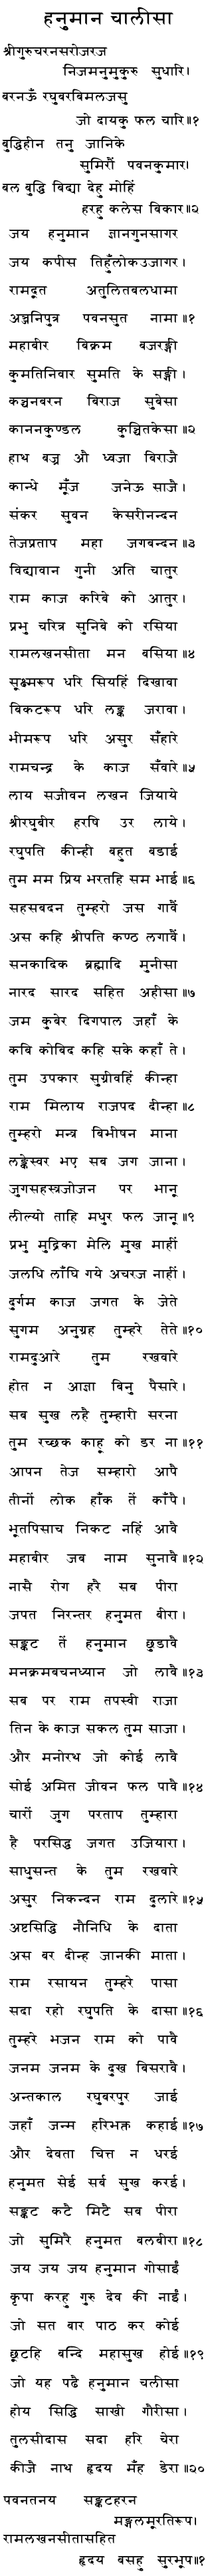 हनुमान चालीसा
श्रीगुरुचरनसरोजरज
निजमनुमुकुरु सुधारि।
बरनऊँ रघुबरबिमलजसु
जो दायकु फल चारि॥१
बुद्धिहीन तनु जानिके
सुमिरौं पवनकुमार।
बल बुद्धि बिद्या देहु मोहिं
हरहु कलेस बिकार॥२
जय हनुमान ज्ञानगुनसागर
जय कपीस तिहुँलोकउजागर।
रामदूत अतुलितबलधामा
अञ्जनिपुत्र पवनसुत नामा॥१
महाबीर बिक्रम बजरङ्गी
कुमतिनिवार सुमति के सङ्गी।
कञ्चनबरन बिराज सुबेसा
काननकुण्डल कुञ्चितकेसा॥२
हाथ बज्र औ ध्वजा बिराजै
कान्धे मूँज जनेऊ साजै।
संकर सुवन केसरीनन्दन
तेजप्रताप महा जगबन्दन॥३
विद्यावान गुनी अति चातुर
राम काज करिबे को आतुर।
प्रभु चरित्र सुनिबे को रसिया
रामलखनसीता मन बसिया॥४
सूक्ष्मरूप धरि सियहिं दिखावा
बिकटरूप धरि लङ्क जरावा।
भीमरूप धरि असुर सँहारे
रामचन्द्र के काज सँवारे॥५
लाय सजीवन लखन जियाये
श्रीरघुबीर हरषि उर लाये।
रघुपति कीन्ही बहुत बडाई
तुम मम प्रिय भरतहि सम भाई॥६
सहसबदन तुम्हरो जस गावैं
अस कहि श्रीपति कण्ठ लगावैं।
सनकादिक ब्रह्मादि मुनीसा
नारद सारद सहित अहीसा॥७
जम कुबेर दिगपाल जहाँ के
कबि कोबिद कहि सके कहाँ ते।
तुम उपकार सुग्रीवहिं कीन्हा
राम मिलाय राजपद दीन्हा॥८
तुम्हरो मन्त्र बिभीषन माना
लङ्केस्वर भए सब जग जाना।
जुगसहस्त्रजोजन पर भानू
लील्यो ताहि मधुर फल जानू॥९
प्रभु मुद्रिका मेलि मुख माहीं
जलधि लाँघि गये अचरज नाहीं।
दुर्गम काज जगत के जेते
सुगम अनुग्रह तुम्हरे तेते॥१०
रामदुआरे तुम रखवारे
होत न आज्ञा बिनु पैसारे।
सब सुख लहै तुम्हारी सरना
तुम रच्छक काहू को डर ना॥११
आपन तेज सम्हारो आपै
तीनों लोक हाँक तें काँपै।
भूतपिसाच निकट नहिं आवै
महाबीर जब नाम सुनावै॥१२
नासै रोग हरै सब पीरा
जपत निरन्तर हनुमत बीरा।
सङ्कट तें हनुमान छुडावै
मनक्रमबचनध्यान जो लावै॥१३
सब पर राम तपस्वी राजा
तिन के काज सकल तुम साजा।
और मनोरथ जो कोई लावै
सोई अमित जीवन फल पावै॥१४
चारों जुग परताप तुम्हारा
है परसिद्ध जगत उजियारा।
साधुसन्त के तुम रखवारे
असुर निकन्दन राम दुलारे॥१५
अष्टसिद्धि नौनिधि के दाता
अस बर दीन्ह जानकी माता।
राम रसायन तुम्हरे पासा
सदा रहो रघुपति के दासा॥१६
तुम्हरे भजन राम को पावै
जनम जनम के दुख बिसरावै।
अन्तकाल रघुबरपुर जाई
जहाँ जन्म हरिभक्त कहाई॥१७
और देवता चित्त न धरई
हनुमत सेई सर्ब सुख करई।
सङ्कट कटै मिटै सब पीरा
जो सुमिरै हनुमत बलबीरा॥१८
जय जय जय हनुमान गोसाईं
कृपा करहु गुरु देव की नाईं।
जो सत बार पाठ कर कोई
छुटहि बन्दि महासुख होई॥१९
जो यह पढै हनुमान चलीसा
होय सिद्धि साखी गौरीसा।
तुलसीदास सदा हरि चेरा
कीजै नाथ हृदय मँह डेरा॥२०
पवनतनय सङ्कटहरन
मङ्गलमूरतिरूप।
रामलखनसीतासहित
हृदय बसहु सुरभूप॥१